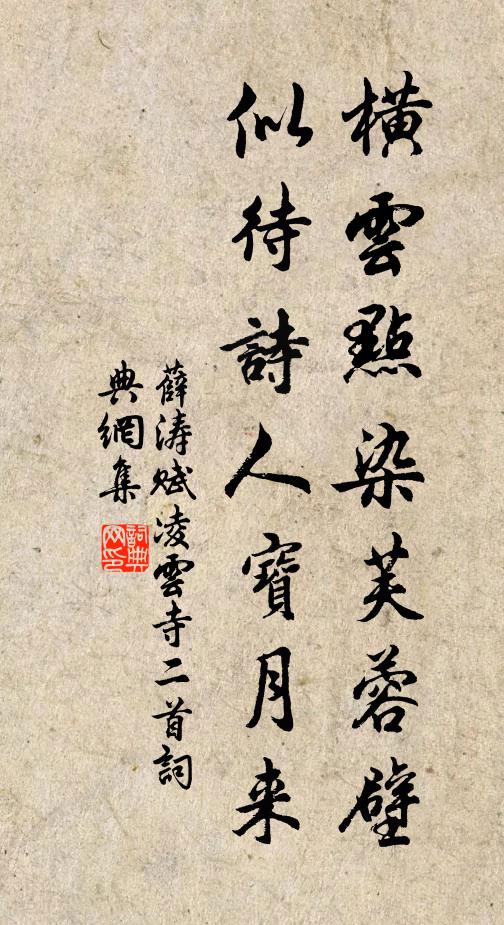 橫雲點染芙蓉壁
似待詩人寶月来
薛濤賦凌雲寺二首詞
典網集
詞典網印